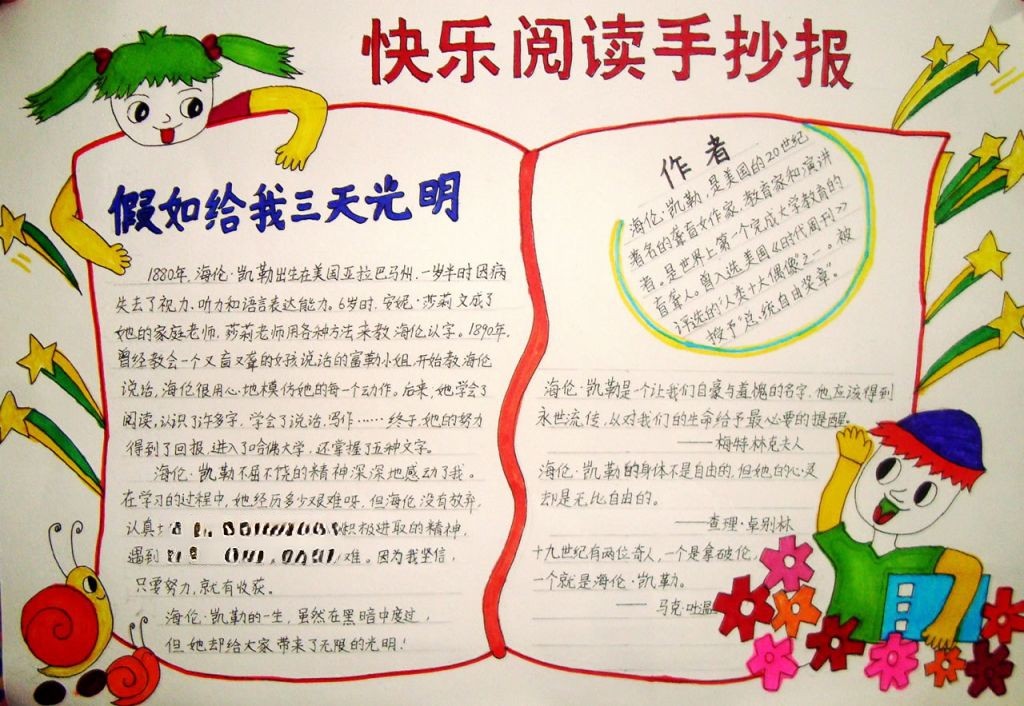 快乐阅读手抄报
假如给我三天光明
1880年,海伦·凯勒出生在美国亚拉巴马州,一岁半时因病
失去了视力、听力和语言表达能力。6岁时,安妮·莎莉文成了
她的家庭老师,莎莉老师用各种方法来教海伦认字。1890年,
曾经教会一个又盲又聋的女孩说话的富勒小姐,开始教海伦
说话,海伦很用心地模仿她的每一个动作。后来,她学会了
阅读,认识了许多字,学会了说话,写作……终于,她的努力
得到了回报,进入了哈佛大学,还掌握了五种文字。
海伦·凯勒不屈不饶的精神深深地感动了我。
在学习的过程中,她经历多少艰难呀,但海伦没有放弃,
认真 积极进取的精神,
遇到 难。因为我坚信,
只要努力,就有收获。
海伦·凯勒的一生,虽然在黑暗中度过,
但她却给大家带来了无限的光明!
作者
海伦·凯勒,是美国的20世纪
著名的聋盲女作家、教育家和演讲
者。是世界上第一个完成大学教育的
盲聋人。曾入选美国《时代周刊》
评选的“人类十大偶像”之一。被
授予“总统自由奖章”。
海伦·凯勒是一个让我们自豪与羞愧的名字,他应该得到
永世流传,从对我们的生命给予最必要的提醒。
——梅特林克夫人
海伦·凯勒的身体不是自由的,但她的心灵
却是无比自由的。
——查理·卓别林
十九世纪有两位奇人,一个是拿破仑,
一个就是海伦·凯勒。
——马克·吐温